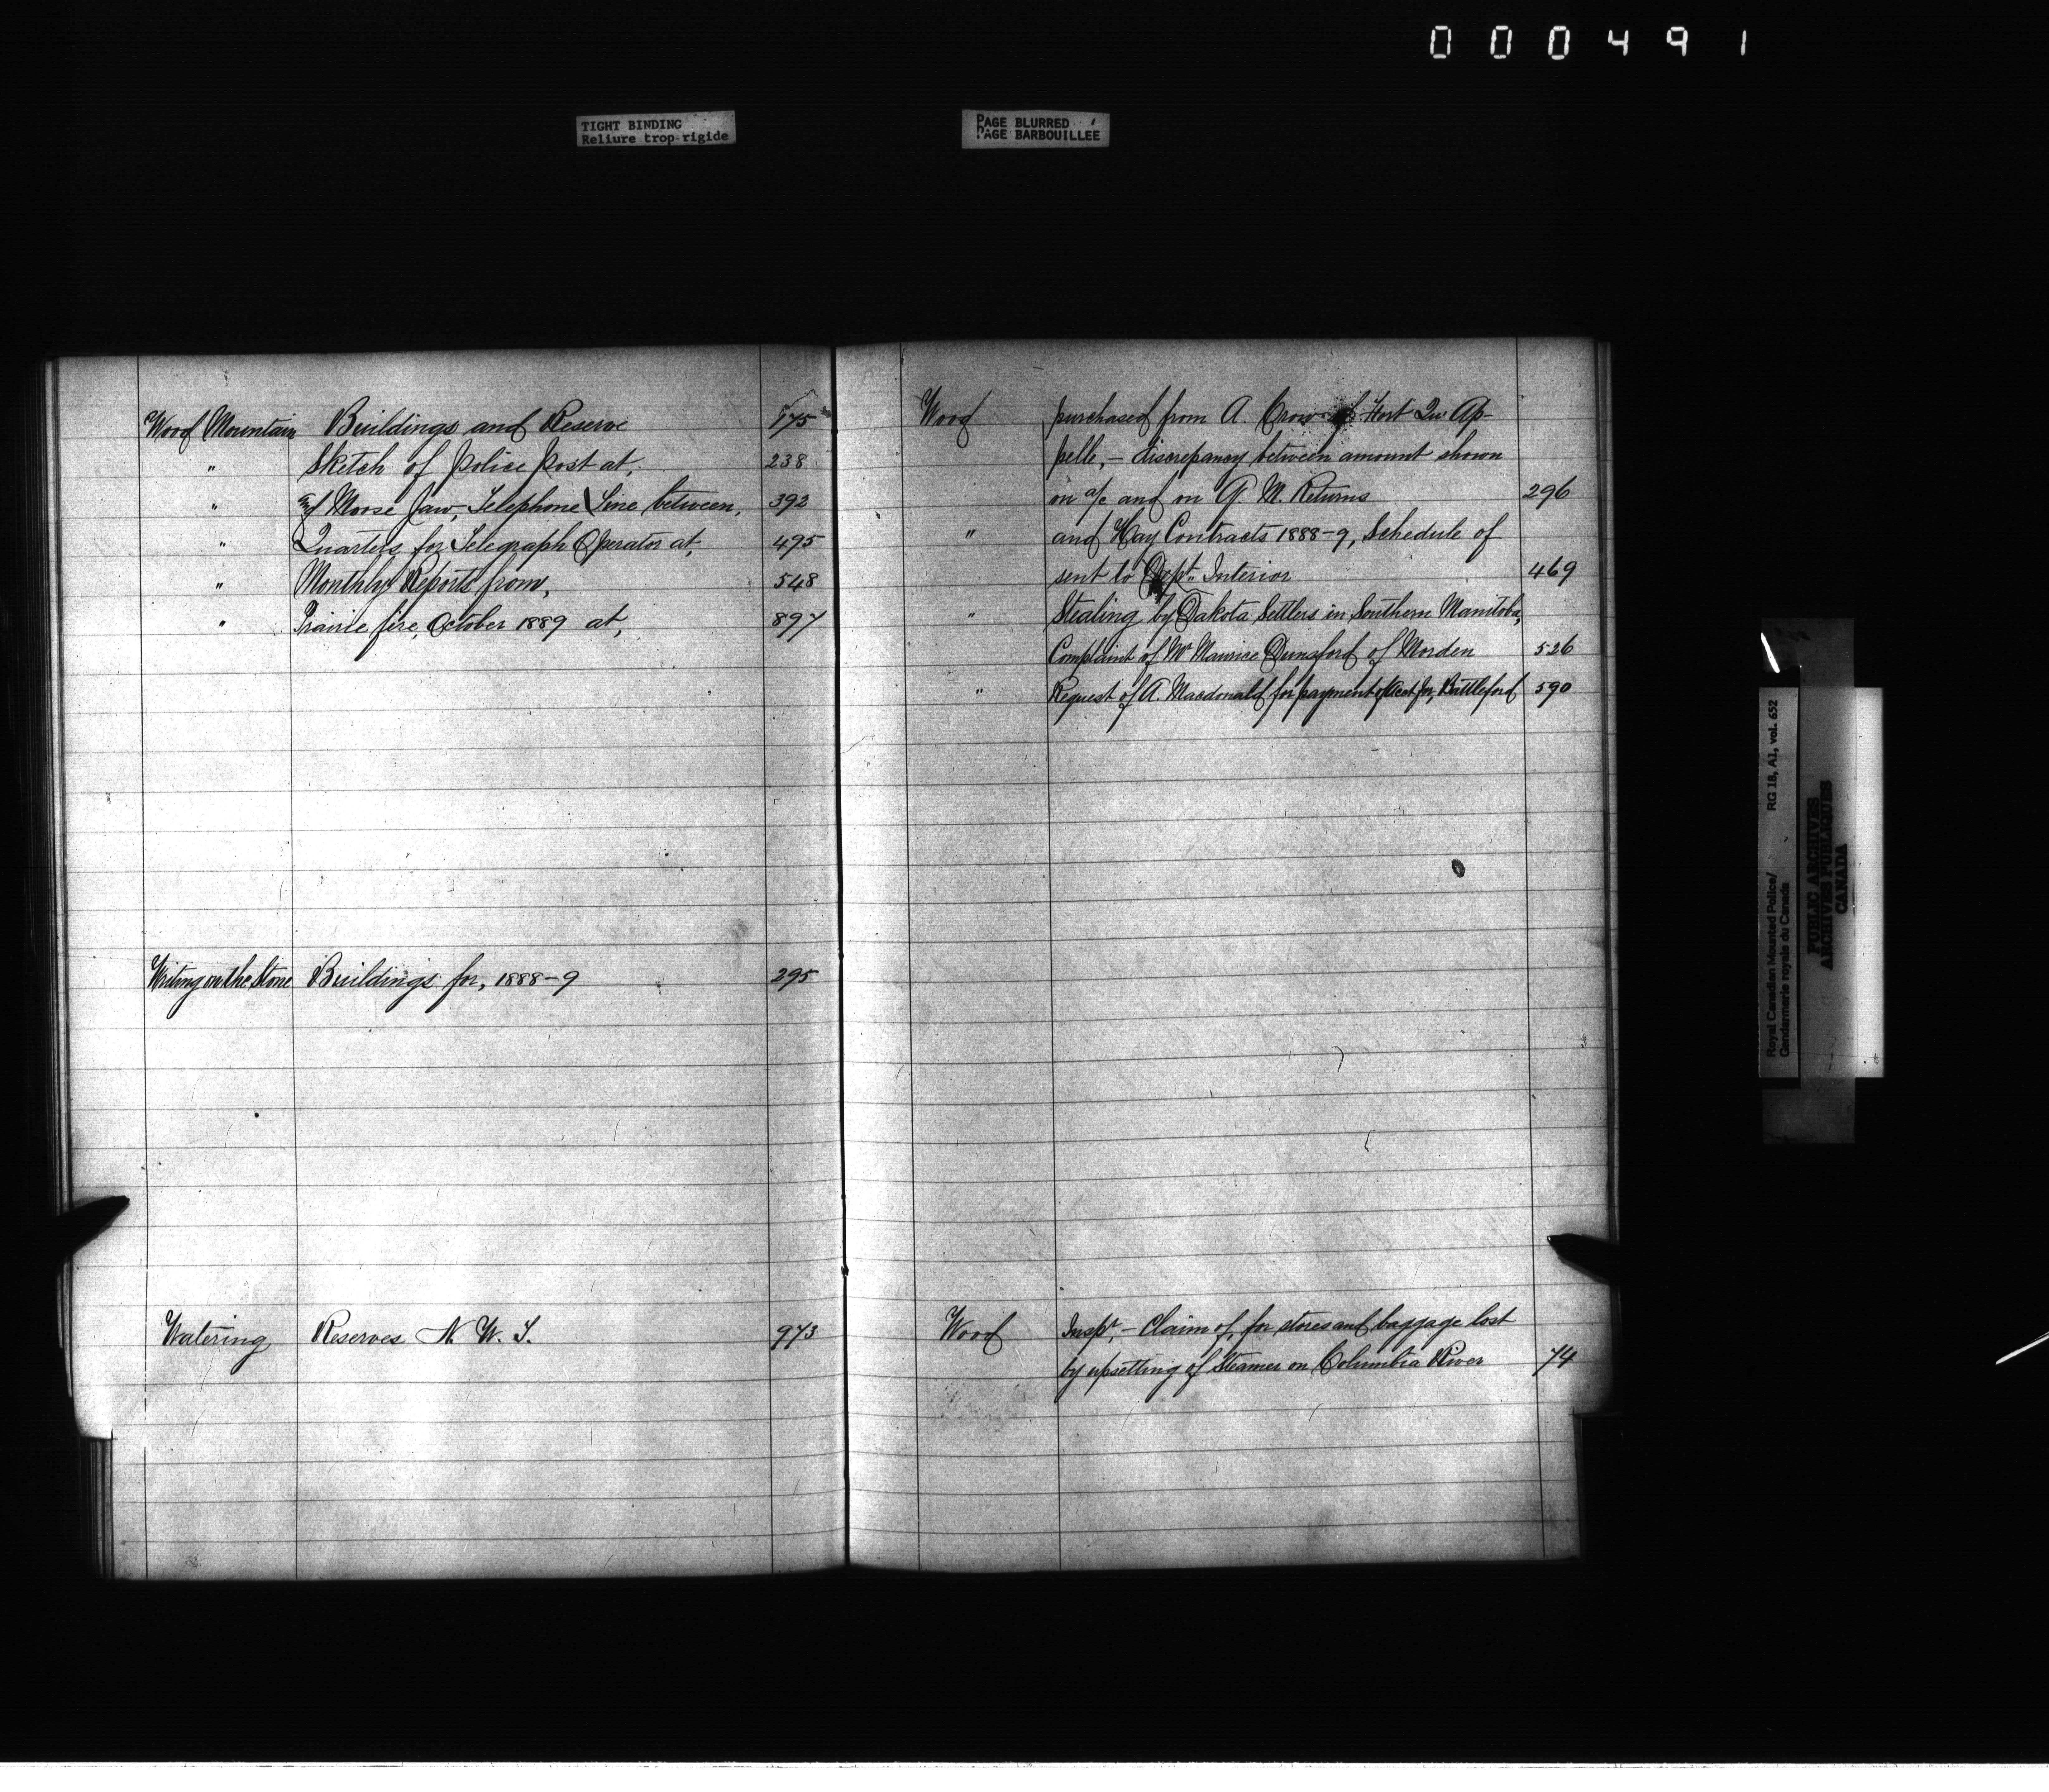 000491
TIGHT BINDING
Reliure trop rigide
PAGE BLURRED
PAGE BARBOUILLÉE
Wood Mountain Buildings and Reserve 175
" Sketch of Police Post at, 238
" and Moose Jaw, Telephone Line between, 392
" Quarters for Telegraph Operator at, 495
" Monthly Reports from, 548
" Prairie fire, October 1889 at, 897
Writing on the Stone Buildings for, 1888-9 295
Watering Reserves N. W. T. 973
Wood purchased from A. Crow of Fort Qu'Ap-
pelle, - discrepancy between amount shown
on a/c and on Q. M. Returns 296
" and Hay Contracts 1888-9, Schedule of
sent to Dept. Interior 469
" Stealing by Dakota Settlers in Southern Manitoba,
Complaint of Mr Maurice Dunsford of Morden 526
" Request of A. Macdonald for payment of acct for, Battleford 590
Wood Inspr, - Claim of, for stores and baggage lost
by upsetting of Steamer on Columbia River 74
Royal Canadian Mounted Police/ RG 18, A1, vol. 652
Gendarmerie royale du Canada
PUBLIC ARCHIVES
ARCHIVES PUBLIQUES
CANADA